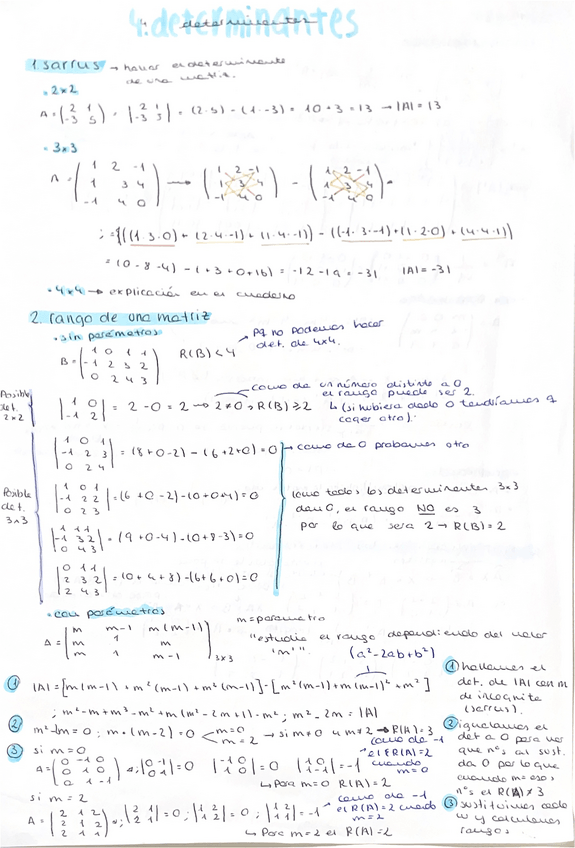 4. determinantes
4. determinantes
1 sarrus → hallar el determinante
de una matriz.
• 2x2
A = (2 1 / -3 5) = |2 1 / -3 5| = (2·5) - (1·-3) = 10 + 3 = 13 → |A| = 13
• 3x3
A = (1 2 -1 / 1 3 4 / -1 4 0) → (1 2 -1 / 1 3 4 / -1 4 0) - (1 2 -1 / 1 3 4 / -1 4 0) =
((1·3·0) + (2·4·-1) + (1·4·-1)) - ((-1·3·-1) + (1·2·0) + (4·4·1))
= (0 - 8 - 4) - (+3 + 0 + 16) = -12 - 19 = -31 |A| = -31
• 4x4 → explicación en el cuaderno
2. rango de una matriz
• sin parámetros
B = (1 0 1 1 / -1 2 3 2 / 0 2 4 3) R(B) < 4
Pq no podemos hacer
det. de 4x4.
Posible
det.
2x2
|1 0 / -1 2| = 2 - 0 = 2 → 2 ≠ 0, R(B) ≥ 2
como da un número distinto a 0
el rango puede ser 2
(si hubiera dado 0 tendríamos q
coger otro).
Posible
det.
3x3
|1 0 1 / -1 2 3 / 0 2 4| = (8 + 0 - 2) - (6 + 2 + 0) = 0 → como da 0 probamos otro
|1 0 1 / -1 2 2 / 0 2 3| = (6 + 0 - 2) - (0 + 0 + 4) = 0
|1 1 1 / -1 3 2 / 0 4 3| = (9 + 0 - 4) - (0 + 8 - 3) = 0
|0 1 1 / 2 3 2 / 2 4 3| = (0 + 4 + 8) - (6 + 6 + 0) = 0
como todos los determinantes 3x3
dan 0, el rango NO es 3
por lo que sera 2 → R(B) = 2
• con parámetros
m = parametro
A = (m m-1 m(m-1) / m 1 m / m 1 m-1) 3x3
"estudia el rango dependiendo del valor
"m"."
(a²-2ab+b²)
① |A| = [m(m-1) + m²(m-1) + m²(m-1)] - [m²(m-1) + m(m-1)² + m²]
; m²-m + m³-m² + m(m²-2m+1) - m²; m²-2m = |A|
② m²-2m = 0; m·(m-2) = 0 < m=0 / m=2 → si m≠0 y m≠2 → R(A) = 3
③ si m=0
A = (0 -1 0 / 0 1 0 / 0 1 -1) → ; |0 -1 / 0 1| = 0 |-1 0 / 1 0| = 0 |1 0 / 1 -1| = -1
como da -1
el R(A)=2
cuando
m=0
↳ Para m=0 R(A)=2
si m = 2
A = (2 1 2 / 2 1 2 / 2 1 1) → ; |2 1 / 2 1| = 0; |1 2 / 1 2| = 0; |1 2 / 1 1| = -1
como da -1
el R(A)=2 cuando
m=2
↳ Para m=2 el R(A)=2
① hallamos el
det. de |A| con m
de incognita
(sarrus).
② igualamos el
det a 0 para ver
que nºs al sust.
da 0 por lo que
cuando m=esos
nºs el R(A) ≠ 3
③ sustituimos cada
m y calculamos
rangos.